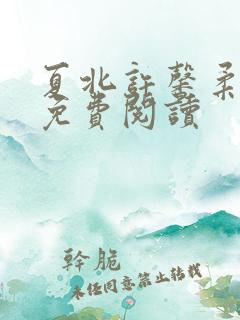 夏北許馨柔
免費閱讀
幹脆
未經同意禁止轉載